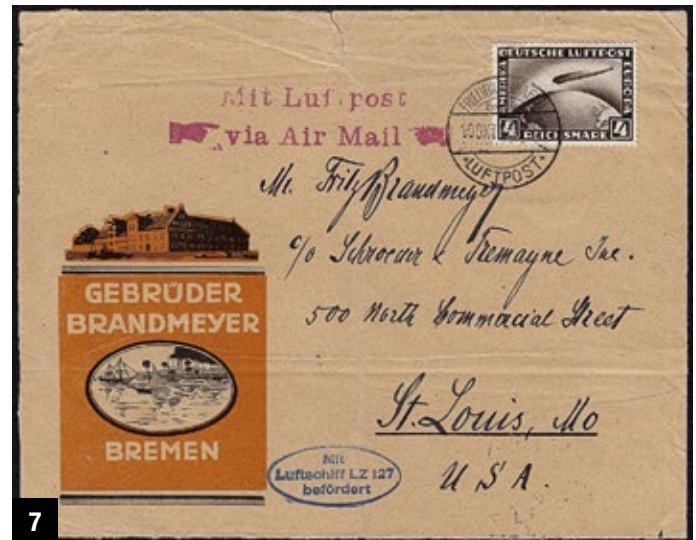 DEUTSCHE LUFTPOST
AMERIKA
EUROPA
4
REICHSMARK
4
Mit Luftpost
via Air Mail
LUFTPOST
Mr. Fritz Brandmeyer
c/o Schroeder & Tremayne Inc.
500 North Commercial Street
St. Louis, Mo
U S A.
GEBRÜDER
BRANDMEYER
BREMEN
Mit
Luftschiff LZ 127
befördert
7